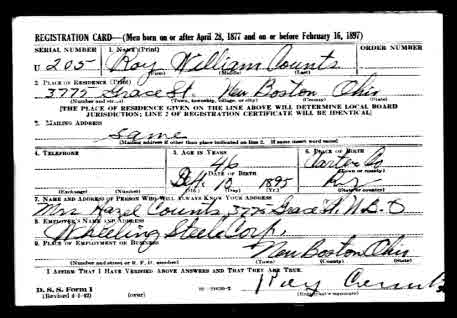 REGISTRATION CARD—(Men born on or after April 28, 1877 and on or before February 16, 1897)
SERIAL NUMBER 1. NAME (Print) ORDER NUMBER
U 205 Roy William Counts
(First) (Middle) (Last)
2. PLACE OF RESIDENCE (Print)
3775 Grace St. New Boston Ohio
(Number and street) (Town, township, village, or city) (County) (State)
[THE PLACE OF RESIDENCE GIVEN ON THE LINE ABOVE WILL DETERMINE LOCAL BOARD
JURISDICTION; LINE 2 OF REGISTRATION CERTIFICATE WILL BE IDENTICAL]
3. MAILING ADDRESS
same
(Mailing address if other than place indicated on line 2. If same insert word same)
4. TELEPHONE 5. AGE IN YEARS 6. PLACE OF BIRTH
46 Carter Co
DATE OF BIRTH (Town or county)
Sept. 10 1895 Ky
(Exchange) (Number) (Mo.) (Day) (Yr.) (State or country)
7. NAME AND ADDRESS OF PERSON WHO WILL ALWAYS KNOW YOUR ADDRESS
Mrs Hazel Counts, 3775 Grace St. N.B.O
8. EMPLOYER'S NAME AND ADDRESS
Wheeling Steel Corp.
9. PLACE OF EMPLOYMENT OR BUSINESS
New Boston Ohio
(Number and street or R. F. D. number) (Town) (County) (State)
I AFFIRM THAT I HAVE VERIFIED ABOVE ANSWERS AND THAT THEY ARE TRUE.
D. S. S. Form 1
(Revised 4-1-42) (over) Roy Counts
(Registrant's signature)